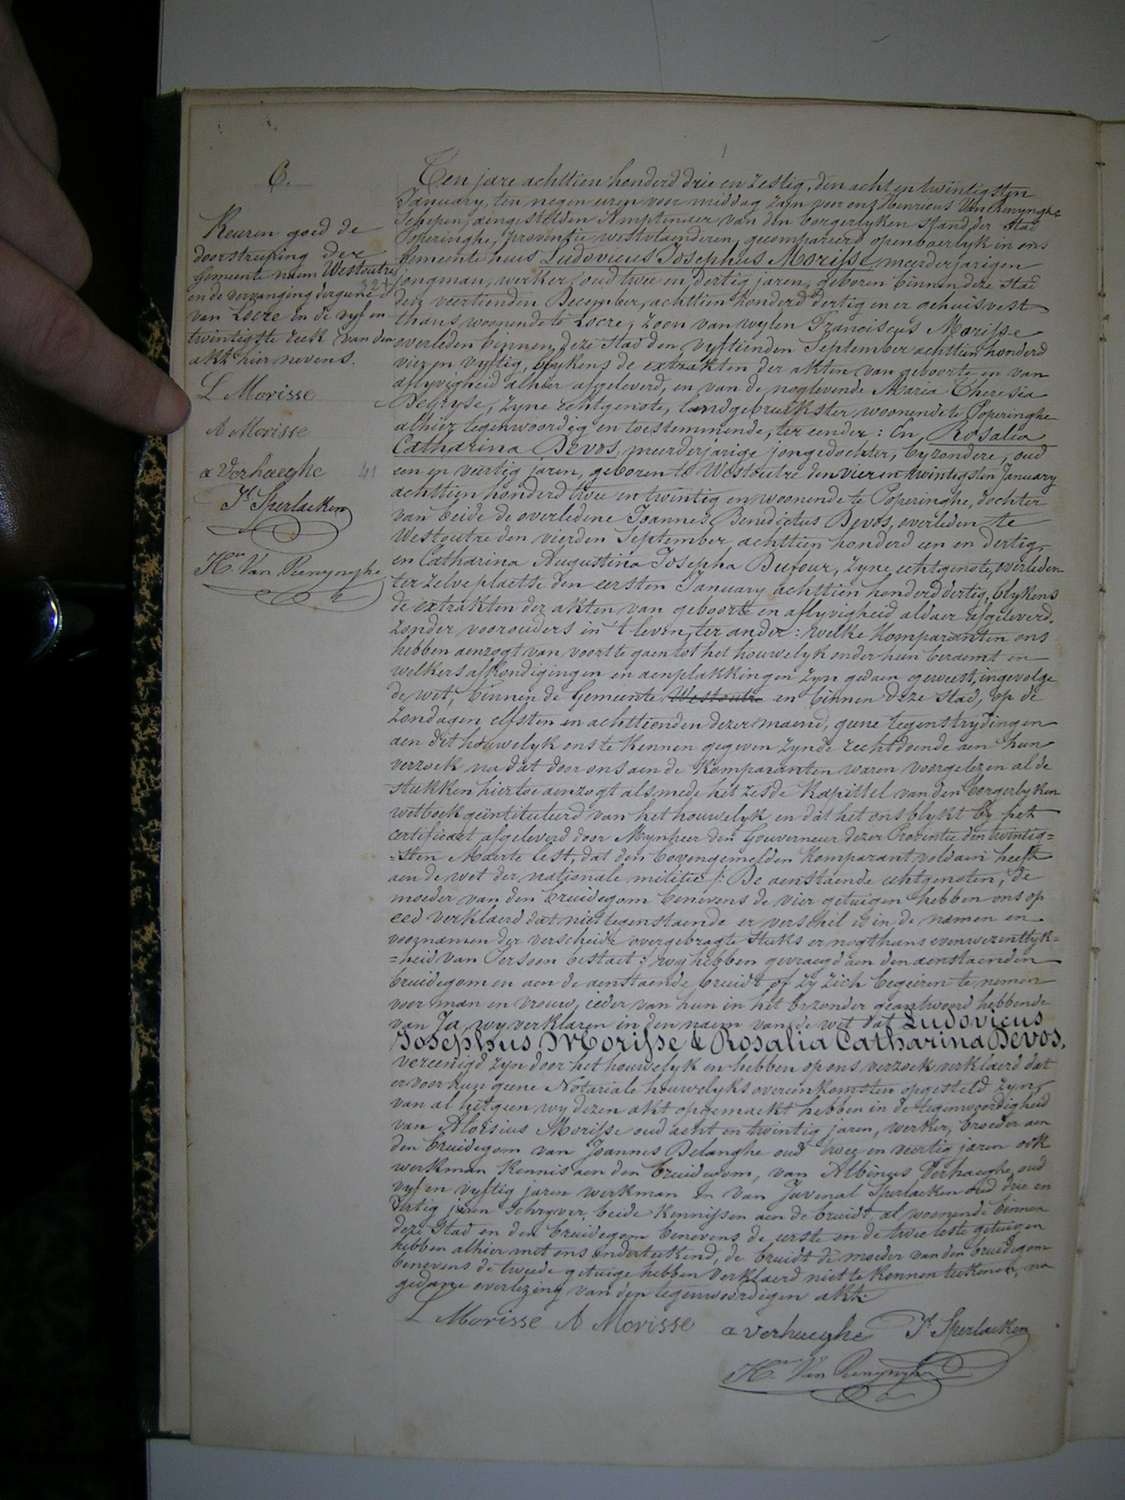 6.
Keuren goed de
doorstreeping der
Gemeente naem Westoutre
en de vervanging dergune
van Locre en de vyf en
twintigste reek van den
akt hier nevens.
L Morisse
A Morisse
a Verhaeghe
Js Sperlaeken
Hri Van Renynghe
Ten jare achttien honderd drie en zestig, den acht en twintigsten
January, ten negen uren voor middag zyn voor ons Henricus Van Renynghe
Schepen, aengestelden Amptenaer van den borgerlyken stand der Stad
Poperinghe, provintie westvlaenderen, gecompareerd openbaerlyk in ons
Gemeente huis Ludovicus Josephus Morisse, meerderjarigen
jongman, werker, oud twee en dertig jaren, geboren binnen deze Stad
den veertienden December, achttien honderd dertig en er gehuisvest
thans woonende te Locre, zoon van wylen Franciscus Morisse
overleden binnen deze stad den vyftienden September achttien honderd
vier en vyftig, blykens de extrakten der akten van geboorte en van
aflyvigheid alhier afgeleverd, en van de noglevende Maria Theresia
Degryse, zyne echtgenote, landgebruikster woonende te Poperinghe
alhier tegenwoordig en toestemmende, ter eender: En Rosalia
Catharina Devos, meerderjarige jongedochter, byzondere, oud
een en veertig jaren, geboren te Westoutre den vier en twintigsten January
achttien honderd twee en twintig en woonende te Poperinghe, dochter
van beide de overledene Joannes Benedictus Devos, overleden te
Westoutre den vierden September achttien honderd een en dertig
en Catharina Augustina Josepha Dufour, zyne echtgenote, overleden
ter zelve plaetse den eersten January achttien honderd dertig, blykens
de extrakten der akten van geboorte en aflyvigheid aldaer afgeleverd,
zonder voorouders in 't leven, ter ander: welke komparanten ons
hebben aenzogt van voorts te gaen tot het houwelyk onder hun beraemt en
welkers afkondigingen en aenplakkingen zyn gedaen geweest, ingevolge
de wet, binnen de Gemeente Westoutre en binnen deze stad, op de
zondagen, elfsten en achttienden dezer maend, geene tegenstrydingen
aen dit houwelyk ons te kennen gegeven zynde rechtdoende aen hun
verzoek na dat door ons aen de komparanten waren voorgelezen al de
stukken hiertoe aenzogt als mede het zesde kapittel van den borgerlyken
wetboek geïntituleerd van het houwelyk en dat het ons blykt by het
certificaet afgeleverd door Mynheer den Gouverneur dezer Provintie den twintig=
=sten Maerte lest, dat den bovengemelden komparant voldaen heeft
aen de wet der nationale militie /: De aenstaende echtgenoten, de
moeder van den bruidegom benevens de vier getuigen hebben ons op
eed verklaerd dat niettegenstaende er verschil is in de namen en
voornamen der verscheide overgebragte stuks er nogthans eenwezentlyk=
=heid van Persoon bestaet :/ wy hebben gevraegd aen den aenstaenden
bruidegom en aen de aenstaende bruidt of zy zich begeeren te nemen
voor man en vrouw, ieder van hun in het bezonder geantwoord hebbende
van Ja, wy verklaren in den naem van de wet dat Ludovicus
Josephus Morisse & Rosalia Catharina Devos,
vereenigd zyn door het houwelyk en hebben op ons verzoek verklaerd dat
er voor hun geene Notariale houwelyks overeenkomsten opgesteld zyn,
van al het geen wy dezen akt opgemaekt hebben in de tegenwoordigheid
van Aloïsius Morisse oud acht en twintig jaren, werker, broeder aen
den bruidegom van Joannes Delanghe oud twee en veertig jaren ook
werkman kennis aen den bruidegom, van Albinus Verhaeghe oud
vyf en vyftig jaren werkman en van Juvenal Sperlaeken oud drie en
dertig jaren Schryver, beide kennissen aen de bruidt al woonende binnen
deze Stad en den bruidegom benevens de eerste en de twee leste getuigen
hebben alhier met ons onderteekend, de bruidt de moeder van den bruidegom
benevens de tweede getuige hebben verklaerd niet te konnen teekenen, na
gedane overlezing van den tegenwoordigen akt.
L Morisse A Morisse a verhaeghe Js Sperlaeken
Hri Van Renynghe